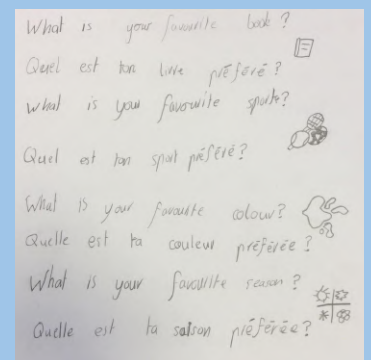 What is your favourite book?
Quel est ton livre préféré?
What is your favourite sport?
Quel est ton sport préféré?
What is your favourite colour?
Quelle est ta couleur préférée?
What is your favourite season?
Quelle est ta saison préférée?